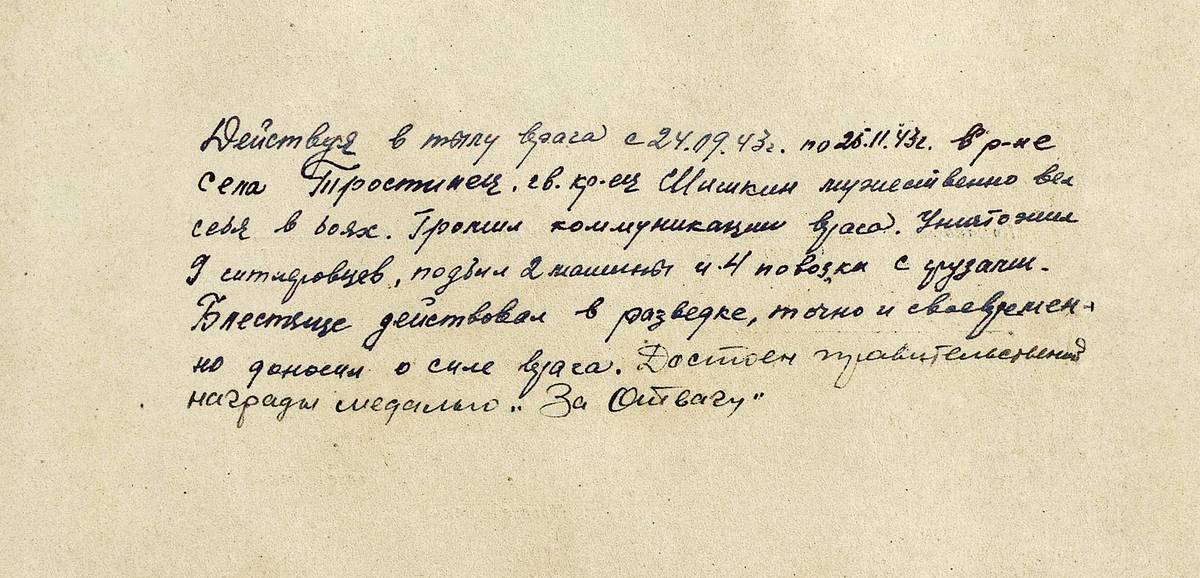 Действуя в тылу врага с 24.09.43г. по 25.11.43г. в р-не
села Тростинец. гв. кр-ец Шишкин мужественно вел
себя в боях. Громил коммуникации врага. Уничтожил
9 гитлеровцев, подбил 2 машины и 4 повозки с грузами.
Блестяще действовал в разведке, точно и своевремен-
но доносил о силе врага. Достоен правительственной
награды медалью „За Отвагу"